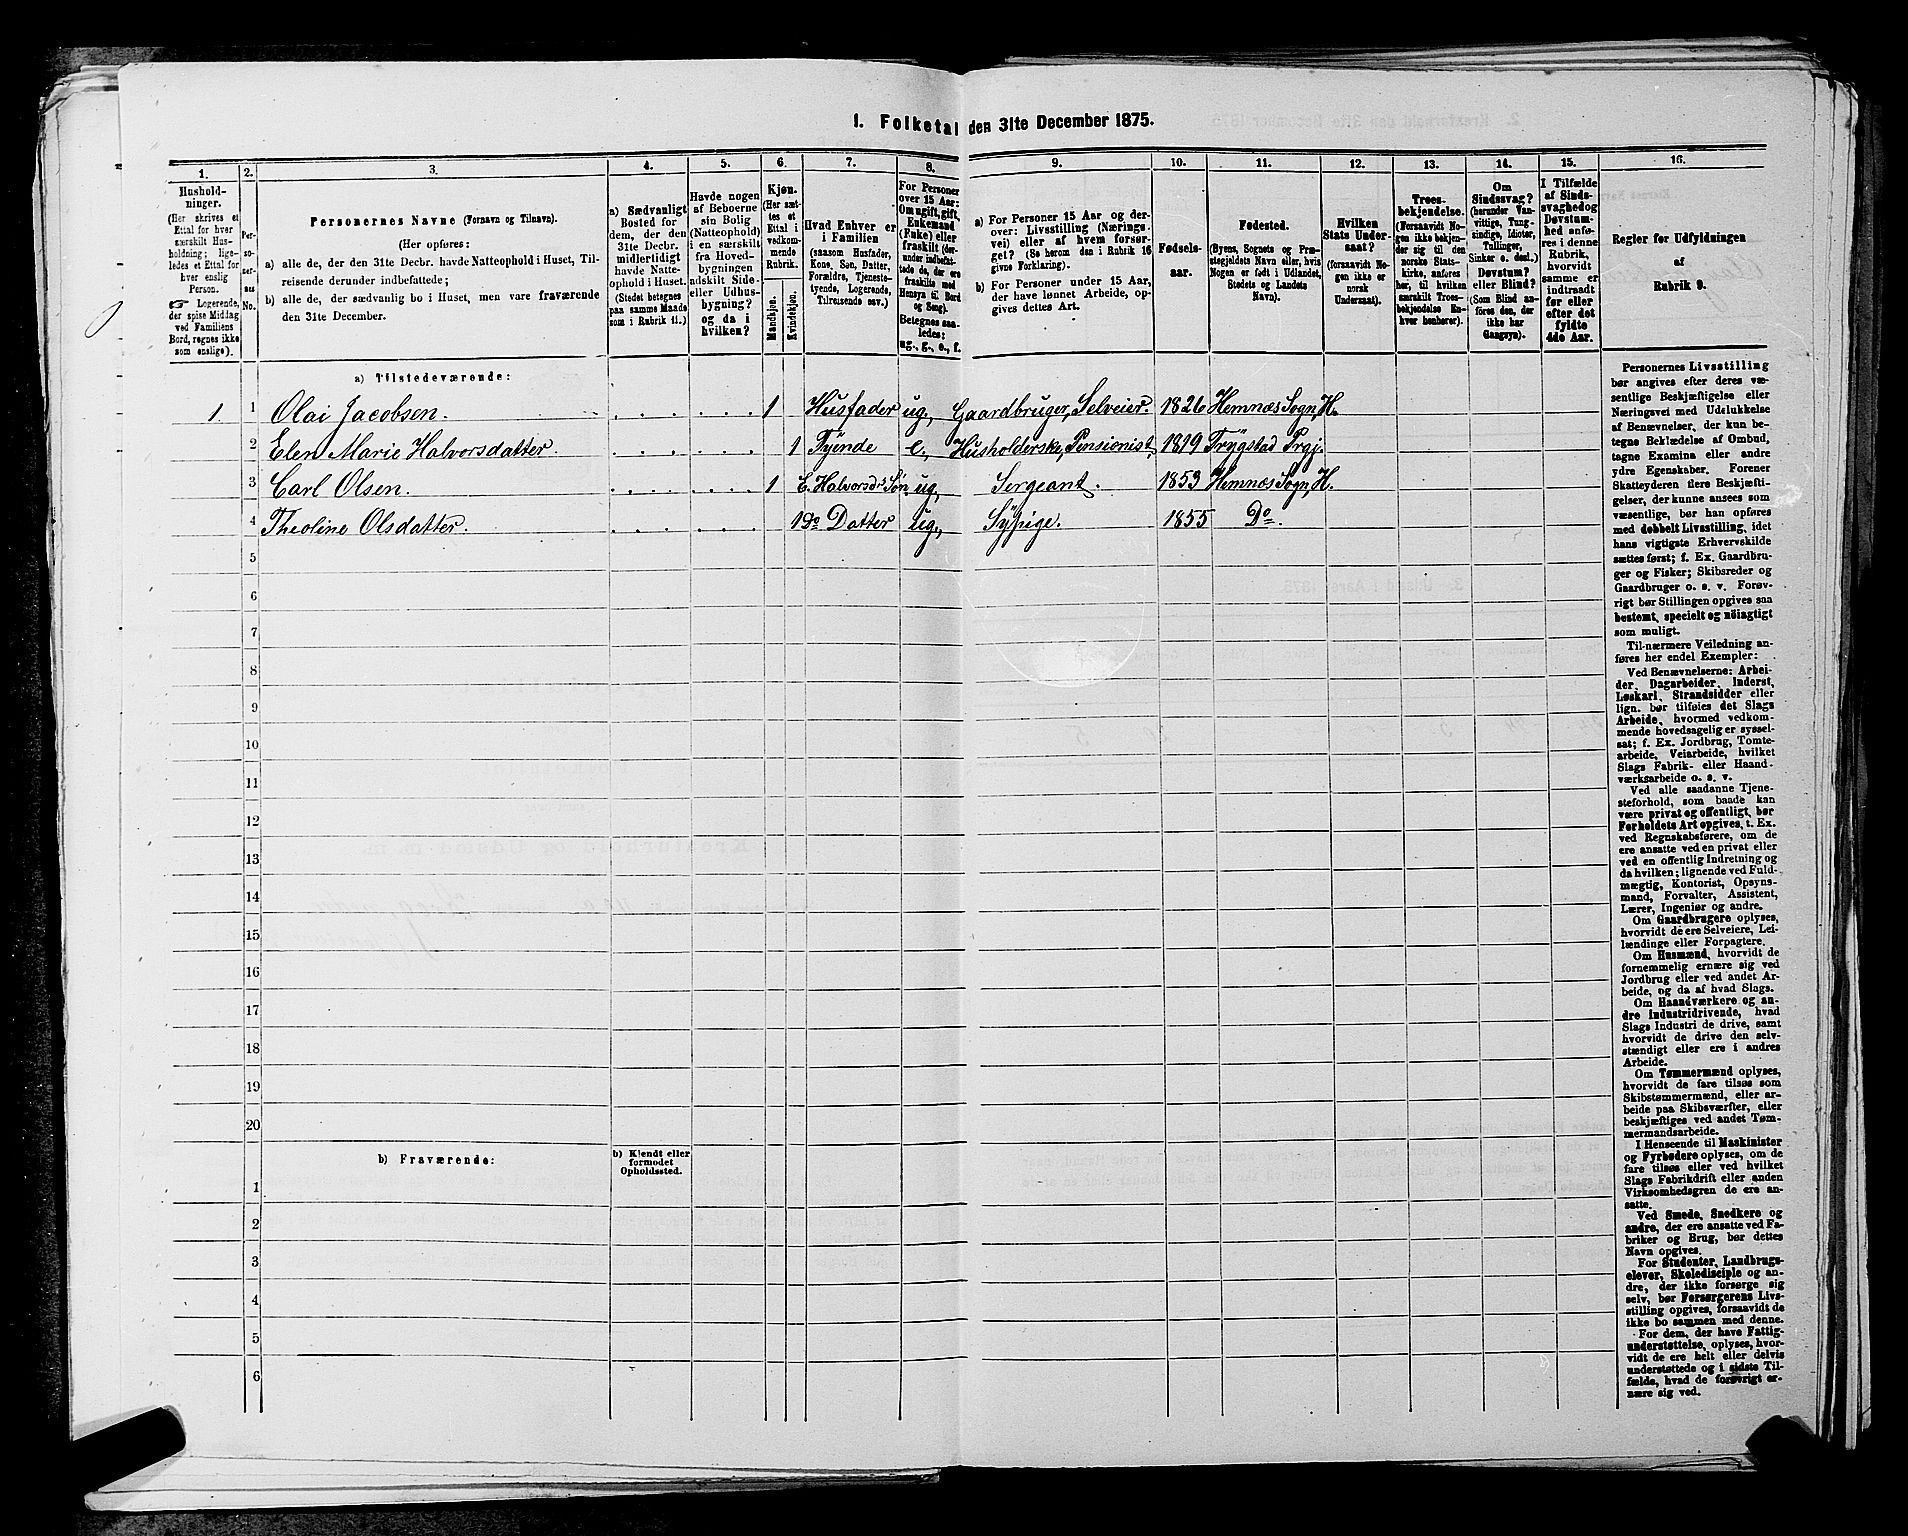 1. Folketal den 31te December 1875.
1.
Hushold-
ninger.
(Her skrives et
Ettal for hver
særskilt Hus-
holdning; lige-
ledes et Ettal for
hver enslig
Person.
☞ Logerende,
der spise Middag
ved Familiens
Bord, regnes ikke
som enslige).
2.
Per-
so-
ner-
nes
No.
3.
Personernes Navne (Fornavn og Tilnavn).
(Her opføres:
a) alle de, der den 31te Decbr. havde Natteophold i Huset, Til-
reisende derunder indbefattede;
b) alle de, der sædvanlig bo i Huset, men vare fraværende
den 31te December.
4.
a) Sædvanligt
Bosted for
dem, der den
31te Decbr.
midlertidigt
havde Natte-
ophold i Huset.
(Stedet betegnes
paa samme Maade
som i Rubrik 11.)
5.
Havde nogen
af Beboerne
sin Bolig
(Natteophold)
i en særskilt
fra Hoved-
bygningen
adskilt Side-
eller Udhus-
bygning?
og da i
hvilken?
6.
Kjøn.
(Her sæt-
tes et
Ettal i
vedkom-
mende
Rubrik.
Mandkjøn.
Kvindekjøn.
7.
Hvad Enhver er
i Familien
(saasom Husfader,
Kone, Søn, Datter,
Forældre, Tjeneste-
tyende, Logerende,
Tilreisende osv.)
8.
For Personer
over 15 Aar:
Om ugift, gift,
Enkemand
(Enke) eller
fraskilt (der-
under indbefat-
tede de, der ere
fraskilte med
Hensyn til Bord
og Seng).
Betegnes saa-
ledes:
ug., g., e., f.
9.
a) For Personer 15 Aar og der-
over: Livsstilling (Nærings-
vei) eller af hvem forsør-
get? (Se herom den i Rubrik 16
givne Forklaring).
b) For Personer under 15 Aar,
der have lønnet Arbeide, op-
gives dettes Art.
10.
Fødsels-
aar.
11.
Fødested.
(Byens, Sognets og Præ-
stegjeldets Navn eller, hvis
Nogen er født i Udlandet,
Stedets og Landets
Navn).
12.
Hvilken
Stats Under-
saat?
(forsaavidt No-
gen ikke er
norsk
Undersaat).
13.
Troes-
bekjendelse.
(Forsaavidt No-
gen ikke bekjen-
der sig til den
norske Stats-
kirke, anføres
her, til hvilken
særskilt Troes-
bekjendelse En-
hver henhører).
14.
Om
Sindssvag?
(herunder Van-
vittige, Tung-
sindige, Idioter,
Tullinger,
Sinker o. desl.)
Døvstum?
eller Blind?
(Som Blind an-
føres den, der
ikke har
Gangsyn).
15.
I Tilfælde
af Sinds-
svaghed og
Døvstum-
hed anfø-
res i denne
Rubrik,
hvorvidt
samme er
indtraadt
før eller
efter det
fyldte
4de Aar.
16.
Regler for Udfyldningen
af
Rubrik 9.
a) Tilstedeværende:
1. 1 Olai Jacobsen. 1 Husfader ug, Gaardbruger, Selveier. 1826 Hemnæs Sogn, H.
2 Elen Marie Halvorsdatter 1 Tyende e, Husholderske, Pensionist, 1819 Trygstad Prgj.
3 Carl Olsen. 1 E. Halvorsd's Søn ug, Sergeant. 1853 Hemnæs Sogn, H.
4 Theoline Olsdatter. 1 Do Datter ug, Sypige. 1855 Do.
5
6
7
8
9
10
11
12
13
14
15
16
17
18
19
20
b) Fraværende:
b) Kjendt eller
formodet
Opholdssted.
1
2
3
4
5
6
Personernes Livsstilling
bør angives efter deres væ-
sentlige Beskjæftigelse eller
Næringsvei med Udelukkelse
af Benævnelser, der kun be-
tegne Beklædelse af Ombud,
tagne Examina eller andre
ydre Egenskaber. Forener
Skatteyderen flere Beskjæfti-
gelser, der kunne ansees som
væsentlige, bør han opføres
med dobbelt Livsstilling, idet
hans vigtigste Erhvervskilde
sættes først; f. Ex. Gaardbru-
ger og Fisker; Skibsreder og
Gaardbruger o. s. v. Forøv-
rigt bør Stillingen opgives saa
bestemt, specielt og nøiagtigt
som muligt.
Til nærmere Veiledning an-
føres her endel Exempler:
Ved Benævnelserne: Arbei-
der, Dagarbeider, Inderst,
Løskarl, Strandsidder eller
lign. bør tilføies det Slags
Arbeide, hvormed vedkom-
mende hovedsagelig er syssel-
sat; f. Ex. Jordbrug, Tomte-
arbeide, Veiarbeide, hvilket
Slags Fabrik- eller Haand-
værksarbeide o. s. v.
Ved alle saadanne Tjene-
steforhold, som baade kan
være privat og offentligt, bør
Forholdets Art opgives, t. Ex.
ved Regnskabsførere, om de
ere ansatte ved en privat eller
ved en offentlig Indretning og
da hvilken; lignende ved Fuld-
mægtig, Kontorist, Opsyns-
mand, Forvalter, Assistent,
Lærer, Ingeniør og andre.
Om Gaardbrugere oplyses,
hvorvidt de ere Selveiere, Lei-
lændinge eller Forpagtere.
Om Husmænd, hvorvidt de
fornemmelig ernære sig ved
Jordbrug eller ved andet Ar-
beide, og da af hvad Slags.
Om Haandværkere og an-
dre Industridrivende, hvad
Slags Industri de drive, samt
hvorvidt de drive den selv-
stændigt eller ere i andres
Arbeide.
Om Tømmermænd oplyses,
hvorvidt de fare tilsøs som
Skibstømmermænd, eller ar-
beide paa Skibsværfter, eller
beskjæftiges ved andet Tøm-
mermandsarbeide.
I Henseende til Maskinister
og Fyrbødere oplyses, om de
fare tilsøs eller ved hvilket
Slags Fabrikdrift eller anden
Virksomhedsgren de ere an-
satte.
Ved Smede, Snedkere og
andre, der ere ansatte ved Fa-
briker og Brug, bør dettes
Navn opgives.
For Studenter, Landbrugs-
elever, Skoledisciple og an-
dre, der ikke forsørge sig
selv, bør Forsørgerens Livs-
stilling opgives, forsaavidt de
ikke bo sammen med denne.
For dem, der have Fattig-
understøttelse, oplyses, hvor-
vidt de ere helt eller delvis
understøttede og i sidste Til-
fælde, hvad de forøvrigt er-
nære sig ved.